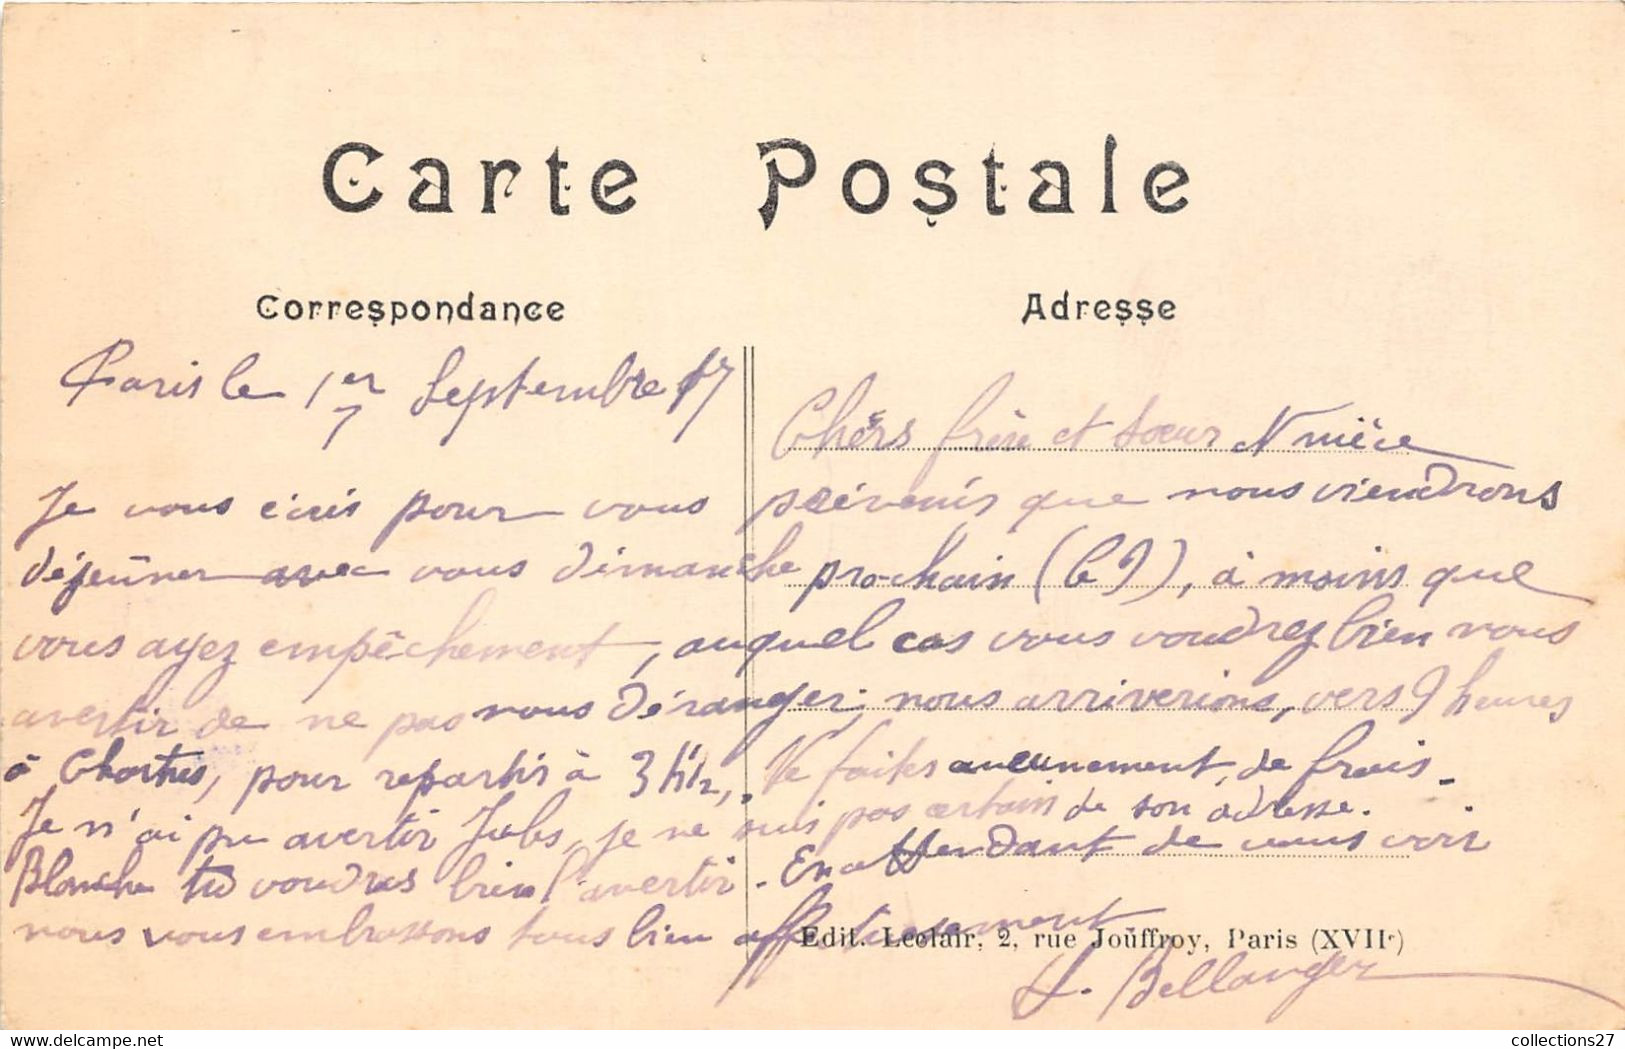 Carte Postale
Correspondance
Adresse
Paris le 1er Septembre 17
7
Chers frère et sœur N nièce
Je vous écris pour vous prévenir que nous viendrons
déjeûner avec vous dimanche prochain (le 9), à moins que
vous ayez empêchement, auquel cas vous voudrez bien nous
avertir de ne pas nous déranger; nous arriverions, vers 9 heures
à Chartres, pour repartir à 3 h 1/2, . Ne faites aucunement de frais.
Je n'ai pu avertir Jules, je ne suis pas certain de son adresse.
Blanche tu voudras bien l'avertir. En attendant de vous voir
nous vous embrassons tous bien affectueusement
Edit. Leclair, 2, rue Jouffroy, Paris (XVIIe)
L. Bellanger
collections27